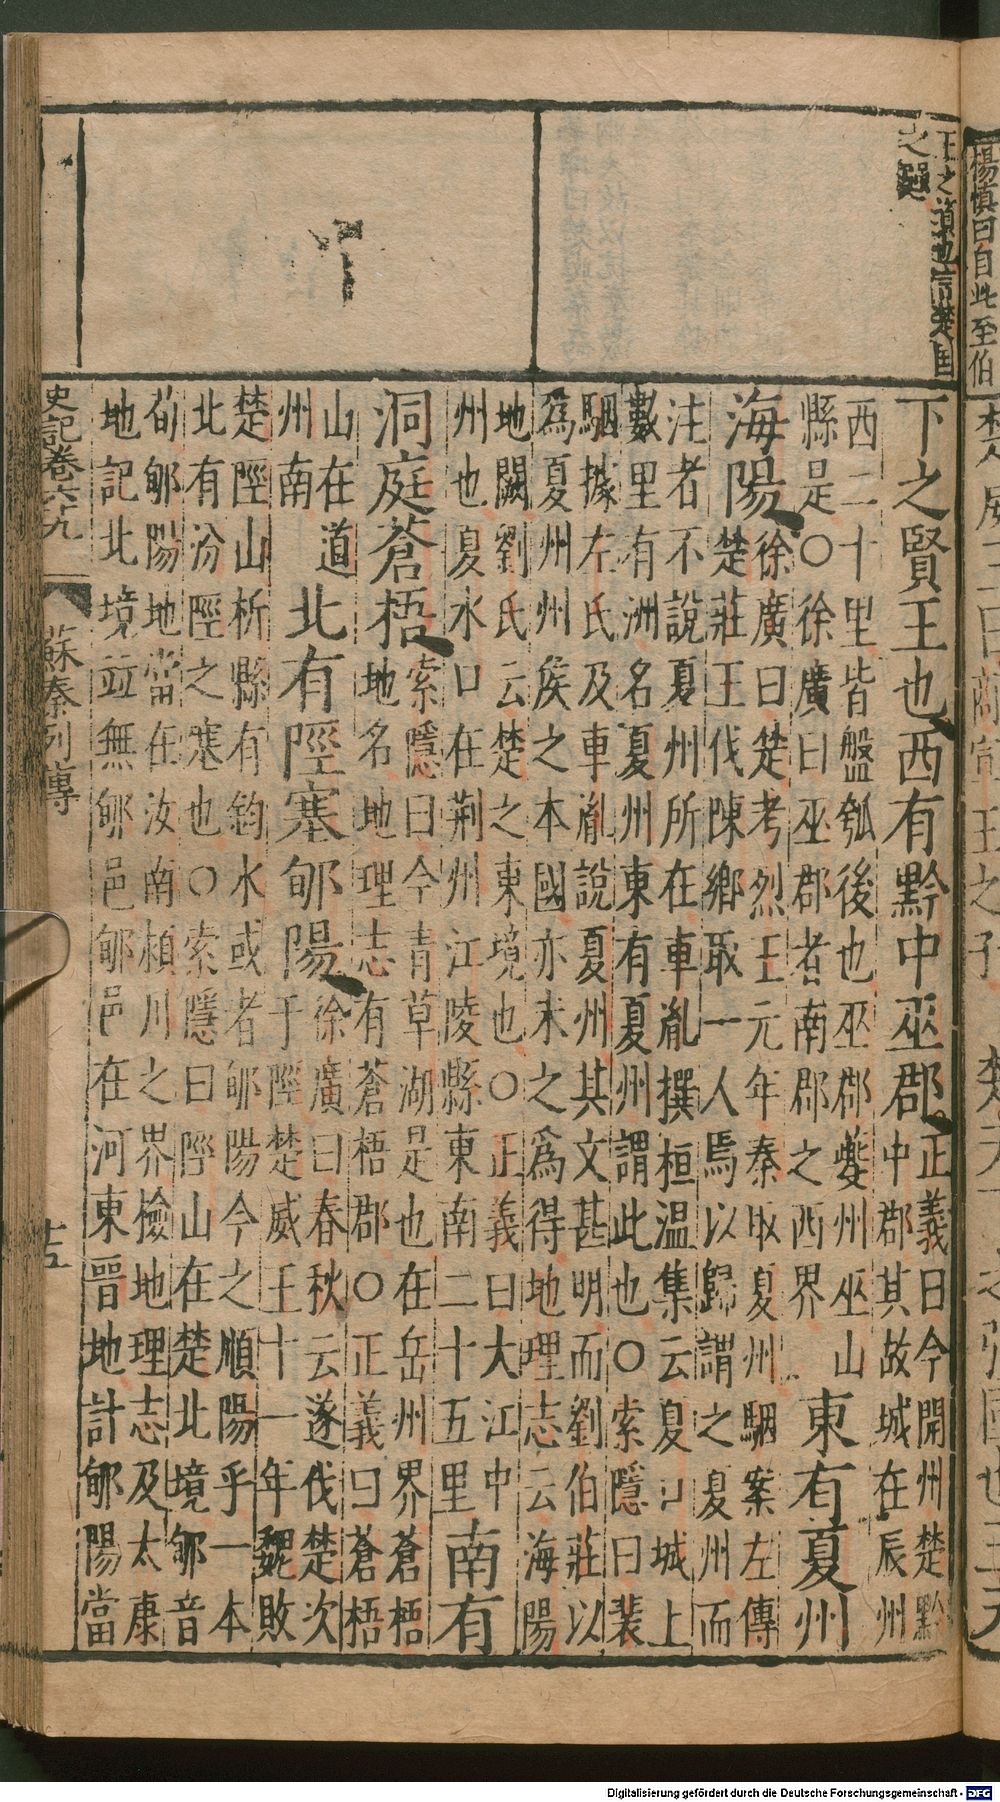 楊慎曰自此至伯
王之道也信楚国
之
下之賢王也西有黔中巫郡
正義曰今開州楚黔
中郡其故城在辰州
西二十里皆盤瓠後也巫郡夔州巫山
縣是〇徐廣曰巫郡者南郡之西界
東有夏州
海陽
徐廣曰楚考烈王元年秦取夏州駰案左傳
楚莊王伐陳鄉取一人焉以歸謂之夏州而
注者不說夏州所在車胤撰桓温集云夏口城上
數里有洲名夏州東有夏州謂此也〇索隱曰裴
駰據左氏及車胤說夏州其文甚明而劉伯莊以
為夏州州侯之本國亦未之為得地理志云海陽
地闕劉氏云楚之東境也〇正義曰大江中
州也夏水口在荆州江陵縣東南二十五里
南有
洞庭蒼梧
索隱曰今青草湖是也在岳州界蒼梧
地名地理志有蒼梧郡〇正義曰蒼梧
山在道
州南
北有陘塞郇陽
徐廣曰春秋云遂伐楚次
于陘楚威王十一年魏敗
楚陘山析縣有鈞水或者郇陽今之順陽乎一本
北有汾陘之塞也〇索隱曰陘山在楚北境郇音
荀郇陽地當在汝南潁川之界檢地理志及太康
地記北境並無郇邑郇邑在河東晉地計郇陽當
史記卷六十九 蘇秦列傳 十五
Digitalisierung gefördert durch die Deutsche Forschungsgemeinschaft - DFG